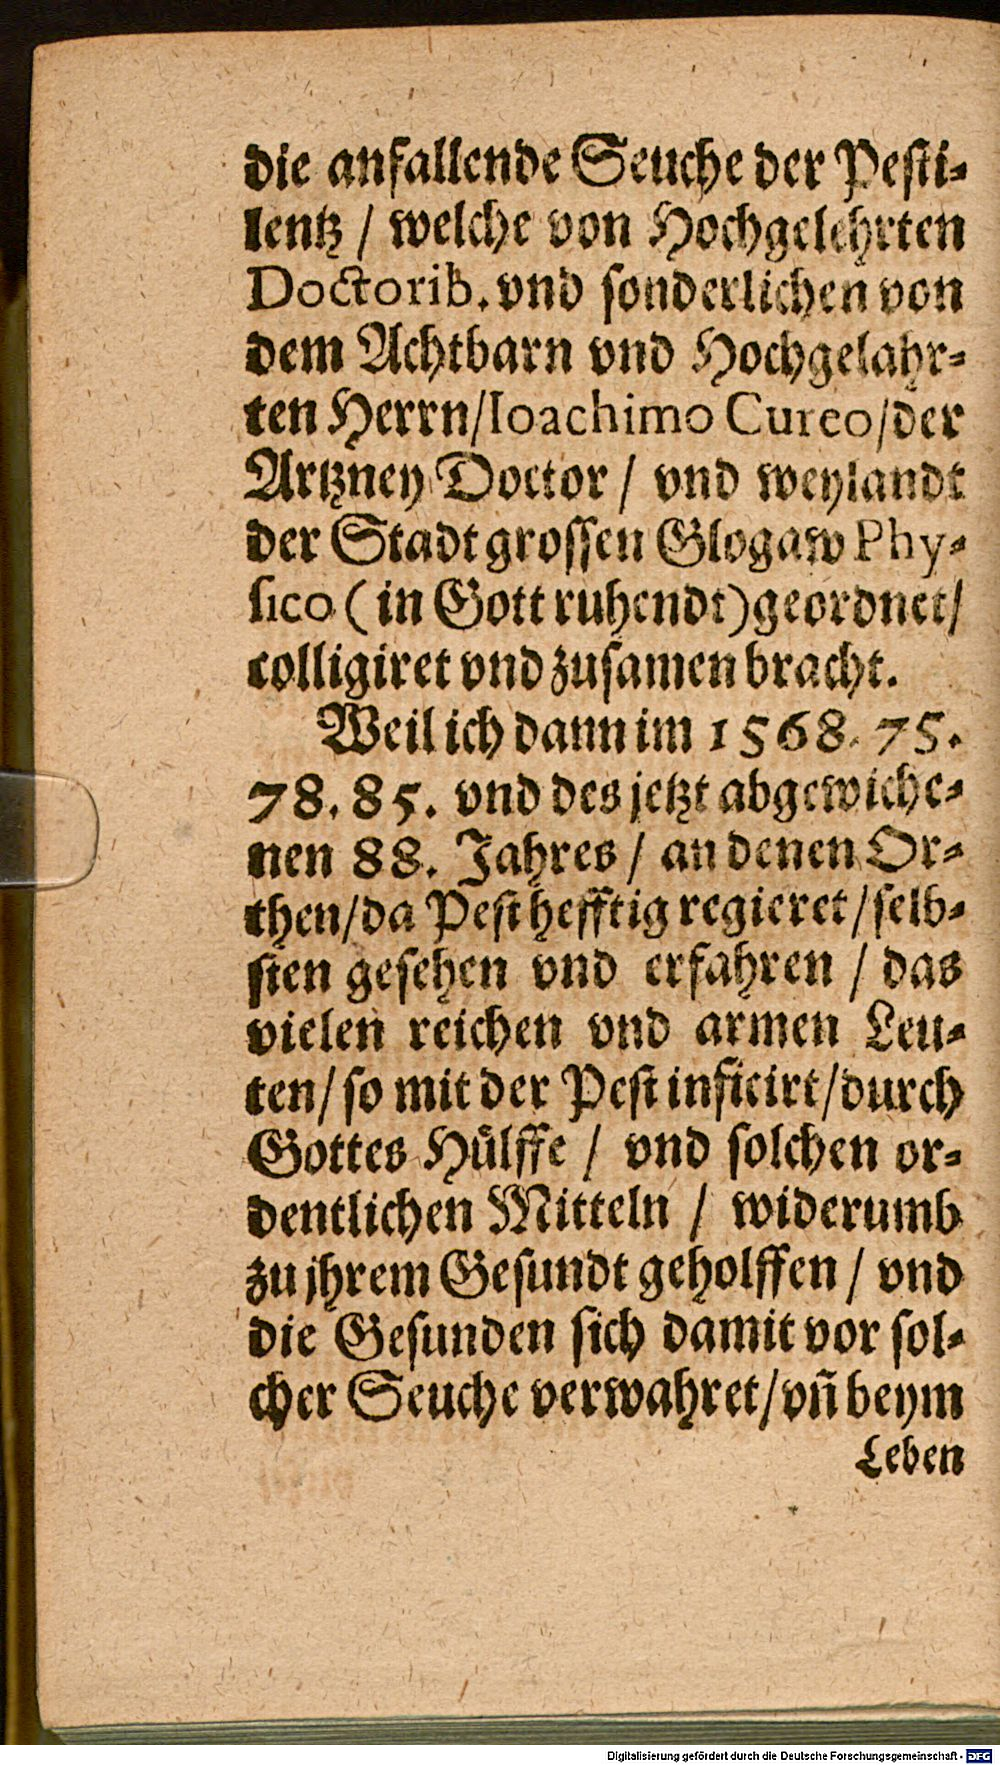 die anfallende Seuche der Pesti-
lentz / welche von Hochgelehrten
Doctorib. vnd sonderlichen von
dem Achtbarn vnd Hochgelahr-
ten Herrn/Ioachimo Cureo/der
Artzney Doctor / vnd weylandt
der Stadt grossen Glogaw Phy-
sico (in Gott ruhendt) geordnet/
colligiret vnd zusamen bracht.
Weil ich dann im 1568. 75.
78. 85. vnd des jetzt abgewiche-
nen 88. Jahres / an denen Or-
then/da Pest hefftig regieret/selb-
sten gesehen vnd erfahren / das
vielen reichen vnd armen Leu-
ten/so mit der Pest inficirt/durch
Gottes Hülffe / vnd solchen or-
dentlichen Mitteln / widerumb
zu jhrem Gesundt geholffen / vnd
die Gesunden sich damit vor sol-
cher Seuche verwahret/vñ beym
Leben
Digitalisierung gefördert durch die Deutsche Forschungsgemeinschaft - DFG